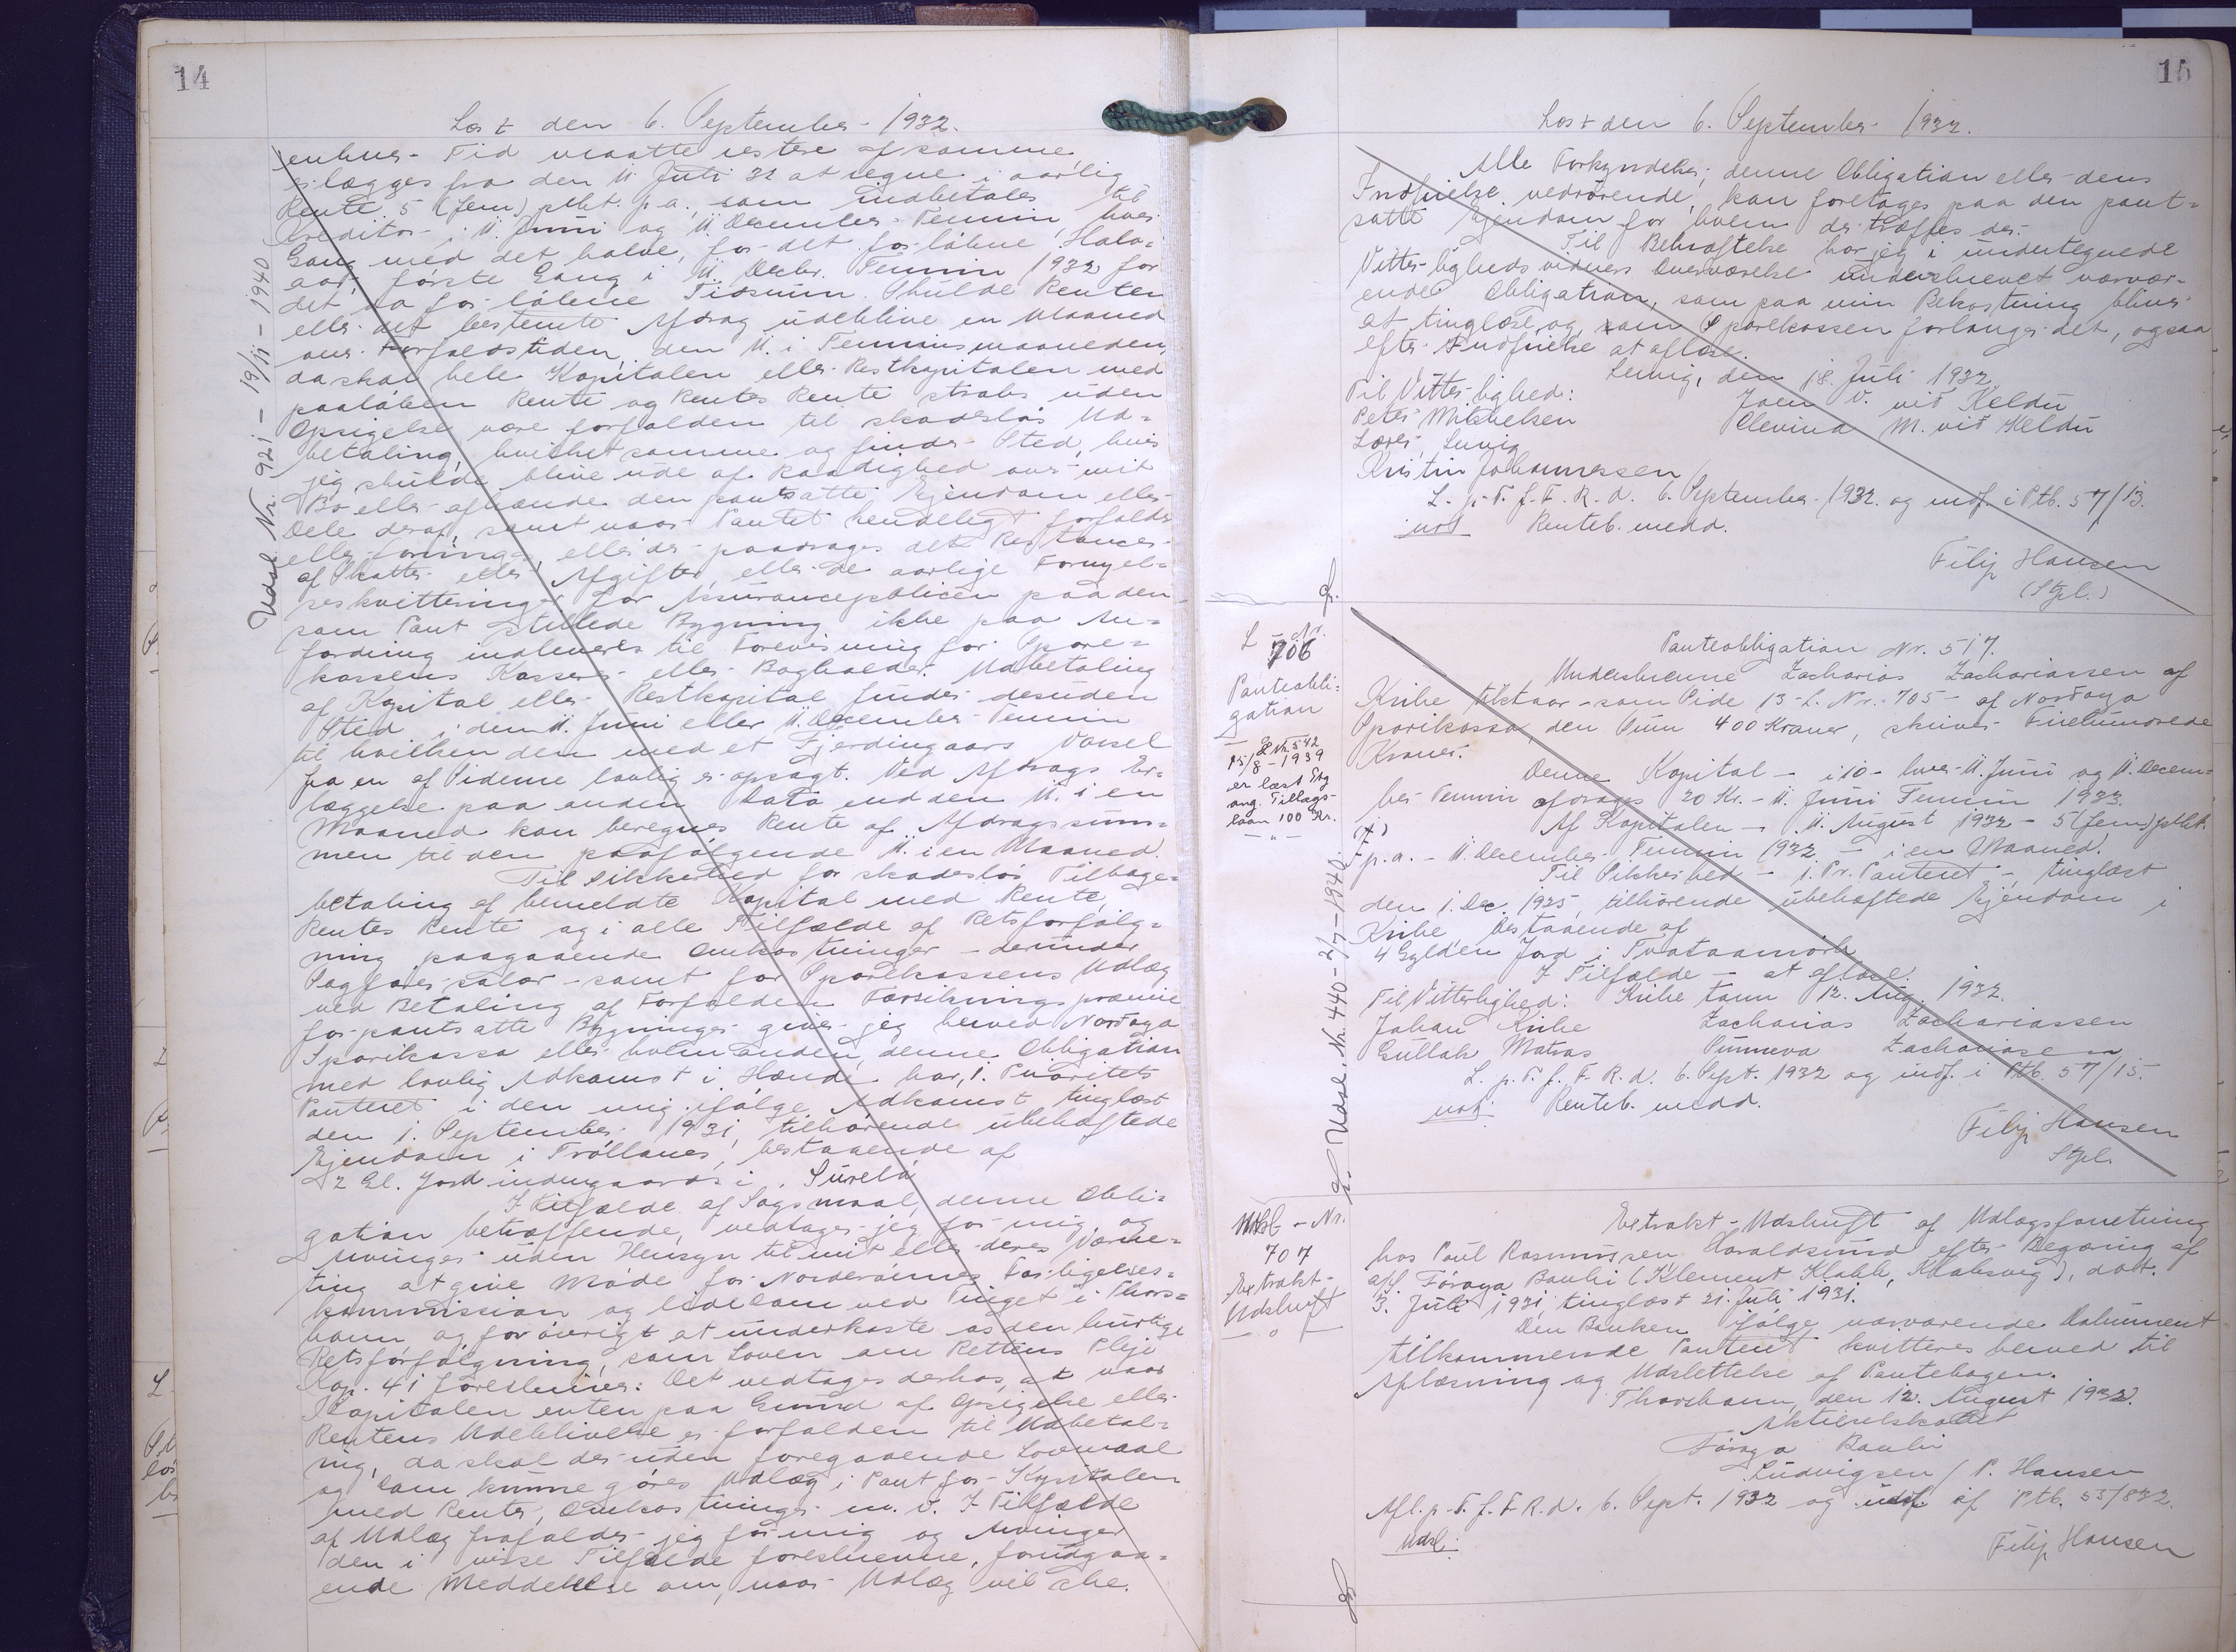 14
Læst den 6. September 1932.
enhver Tid maatte restere af samme
erlægges fra den 11. Juli 32 at regne i aarlig
Rente 5 (fem) pCt. p.a., som indbetales til
Creditor i 11. Juni og 11. December Termin, hver
Gang med det halve, for det forløbne Halv-
aar, første Gang i 11. Decbr. Termin 1932 for
det da forløbne Tidsrum. Skulde Renten
eller det bestemte Afdrag udeblive en Maaned
over Forfaldstiden, den 11. i Terminsmaaneden,
da skal hele Kapitalen eller Restkapitalen med
paaløben Rente og Rentes Rente straks uden
Opsigelse være forfalden til skadesløs Ud-
betaling, hvilket samme og finder Sted, hvis
jeg skulde blive ude af Raadighed over mit
Bo eller afhænde den pantsatte Ejendom eller
Dele deraf, samt naar Pantet kendeligt forfalder
eller forringes, eller der paadrages det Restancer
af Skatter eller Afgifter, eller de aarlige Fornyel-
seskvitteringer for Assurancepolicen paa den
som Pant stillede Bygning ikke paa An-
fordring indleveres til Forevisning for Spare-
kassens Kasserer eller Bogholder. Udbetaling
af Kapital eller Restkapital finder desuden
Sted i den 11. Juni eller 11. December Termin
til hvilken den med et Fjerdingaars Varsel
fra en af Siderne lovlig er opsagt. Ved Afdrags Er-
læggelse paa anden Dato end den 11. i en
Maaned kan beregnes Rente af Afdragssum-
men til den paafølgende 11. i en Maaned.
Til Sikkerhed for skadesløs Tilbage-
betaling af bemeldte Kapital med Rente,
Rentes Rente og i alle Tilfælde af Retsforfølg-
ning paagaaende Omkostninger - derunder
Sagførersalær - samt for Sparekassens Udlæg
ved Betaling af Forfalden Forsikringspræmie
for pantsatte Bygninger giver jeg herved Norðoya
Sparikassa eller hvem anden, denne Obligation
med lovlig Adkomst i Hænde har, 1. Prioritets
Panteret i den mig ifølge Adkomst tinglæst
den 1. September 1931, tilhørende ubehæftede
Ejendom i Trøllanes, bestaaende af
2 Gl. Jord indengaards i Surelá
I Tilfælde af Sagsmaal, denne Obli-
gation betræffende, vedtager jeg for mig og
Arvinger uden Hensyn til mit eller deres Værne-
ting at give Møde for Norderøernes Forligelses-
kommission og ligesom ved Tinget i Thors-
havn og forøvrigt at underkaste os den hurtige
Retsforfølgning, som Loven om Rettens Pleje
Kap. 41 foreskriver: Det vedtages derhos, at naar
Kapitalen enten paa Grund af Opsigelse eller
Rentens Udeblivelse er forfalden til Udbetal-
ing, da skal der uden foregaaende Lovmaal
og Dom kunne gøres Udlæg i Pant for Kapitalen
med Renter, Omkostninger m. v. I Tilfælde
af Udlæg frafalder jeg for mig og Arvinger
den i visse Tilfælde foreskrevne, forudgaa-
ende Meddelelse om, naar Udlæg vil ske.
Udsl. Nr. 921 - 19/11 - 1940
15
Læst den 6. September 1932.
Alle Forkyndelser, denne Obligation eller dens
Indfrielse vedrørende, kan foretages paa den pant-
satte Ejendom for hvem der træffes der.
Til Bekræftelse har jeg i undertegnede
Vitterligheds vidners Overværelse underskrevet nærvær-
ende Obligation, som paa min Bekostning bliver
at tinglæse, og, som Sparekassen forlanger det, ogsaa
efter Indfrielse at aflæse.
Leivig, den 18. Juli 1932.
Til Vitterlighed:
Joen V. við Keldu
Peter Mitchelsen
Olevina M. við Keldu
Lærer, Leivig
Kristin Johannessen
L. p. T. f. F. R. d. 6. September 1932 og indf. i Ptb. 57/13.
not Renteb. medd.
Filip Hansen
(Stpl.)
L - Nr.
706
Panteobli-
gation
L Nr. 542
15/8 - 1939
er læst Erkl.
ang. Tillægs-
laan 100 Kr.
Panteobligation Nr. 517.
Underskrevne Zacharias Zachariassen af
Kvivik tilstaar - som Side 13 - L. Nr. 705 - af Norðoya
Sparikassa, den Sum 400 Kroner, skriver Firehundrede
Kroner.
Denne Kapital - i 10 - hver 11. Juni og 11. Decem-
ber Termin afdrages 20 Kr. - 11. Juni Termin 1933.
Af Kapitalen - 11. August 1932 - 5 (fem) pCt.
p.a. - 11. December Termin 1932 - i en Maaned.
Til Sikkerhed - 1. Pr. Panteret - tinglæst
den 1. Dec. 1925, tilhørende ubehæftede Ejendom i
bestaaende af
4 Gylden Jord i
I Tilfælde - at aflæse.
Til Vitterlighed: 12. Aug. 1932.
Johan
Zacharias Zachariassen
Gullak Matras
Sunneva Zachariasen
L. p. T. f. F. R. d. 6. Sept. 1932 og indf. i Ptb. 57/15.
not. Renteb. medd.
Filip Hansen
Stpl.
Udsl. Nr. 440 - 2/7 - 1940
Udsl - Nr.
707
Extrakt-
Udskrift
Extrakt-Udskrift af Udlægsforretning
hos Poul Rasmussen Haraldsund efter Begæring af
A/S Føroya Banki (Klement Klakk, Klaksvig), dat.
3. Juli 1931, tinglæst 21. Juli 1931.
Den Banken ifølge nærværende Dokument
tilkommende Panteret kvitteres herved til
Aflæsning og Udslettelse af Pantebogen.
Thorshavn, den 12. August 1932.
Aktieselskabet
Føroya Banki
Ludvigsen / P. Hansen
Afl. p. T. f. F. R. d. 6. Sept. 1932 og udsl. af Ptb. 53/832.
Udsl.
Filip Hansen